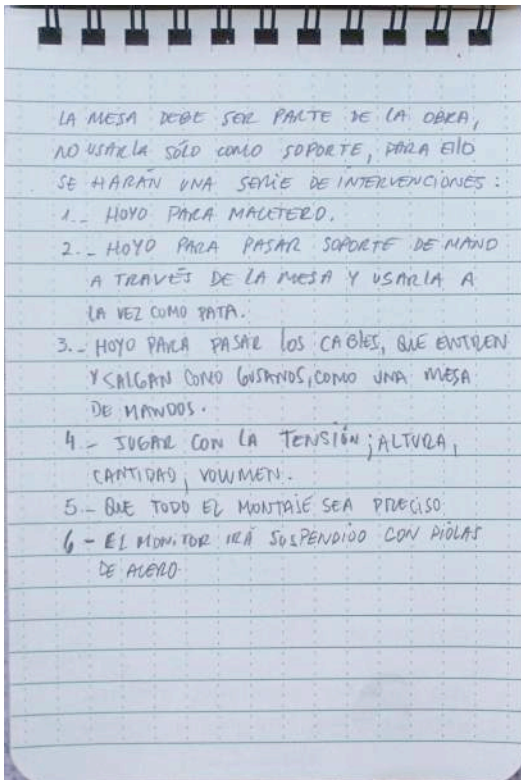 LA MESA DEBE SER PARTE DE LA OBRA,
NO USARLA SÓLO COMO SOPORTE, PARA EllO
SE HARÁN UNA SERIE DE INTERVENCIONES:
1.- HOYO PARA MACETERO.
2.- HOYO PARA PASAR SOPORTE DE MANO
A TRAVÉS DE LA MESA Y USARLA A
LA VEZ COMO PATA.
3.- HOYO PARA PASAR los CABlES, QUE ENTREN
Y SALGAN COMO GUSANOS, COMO UNA MESA
DE MANDOS.
4.- JUGAR CON LA TENSIÓN; ALTURA,
CANTIDAD, VOLUMEN.
5.- QUE TODO EL MONTAJE SEA PRECISO
6- EL MONITOR IRÁ SUSPENDIDO CON PIOLAS
DE ACERO.